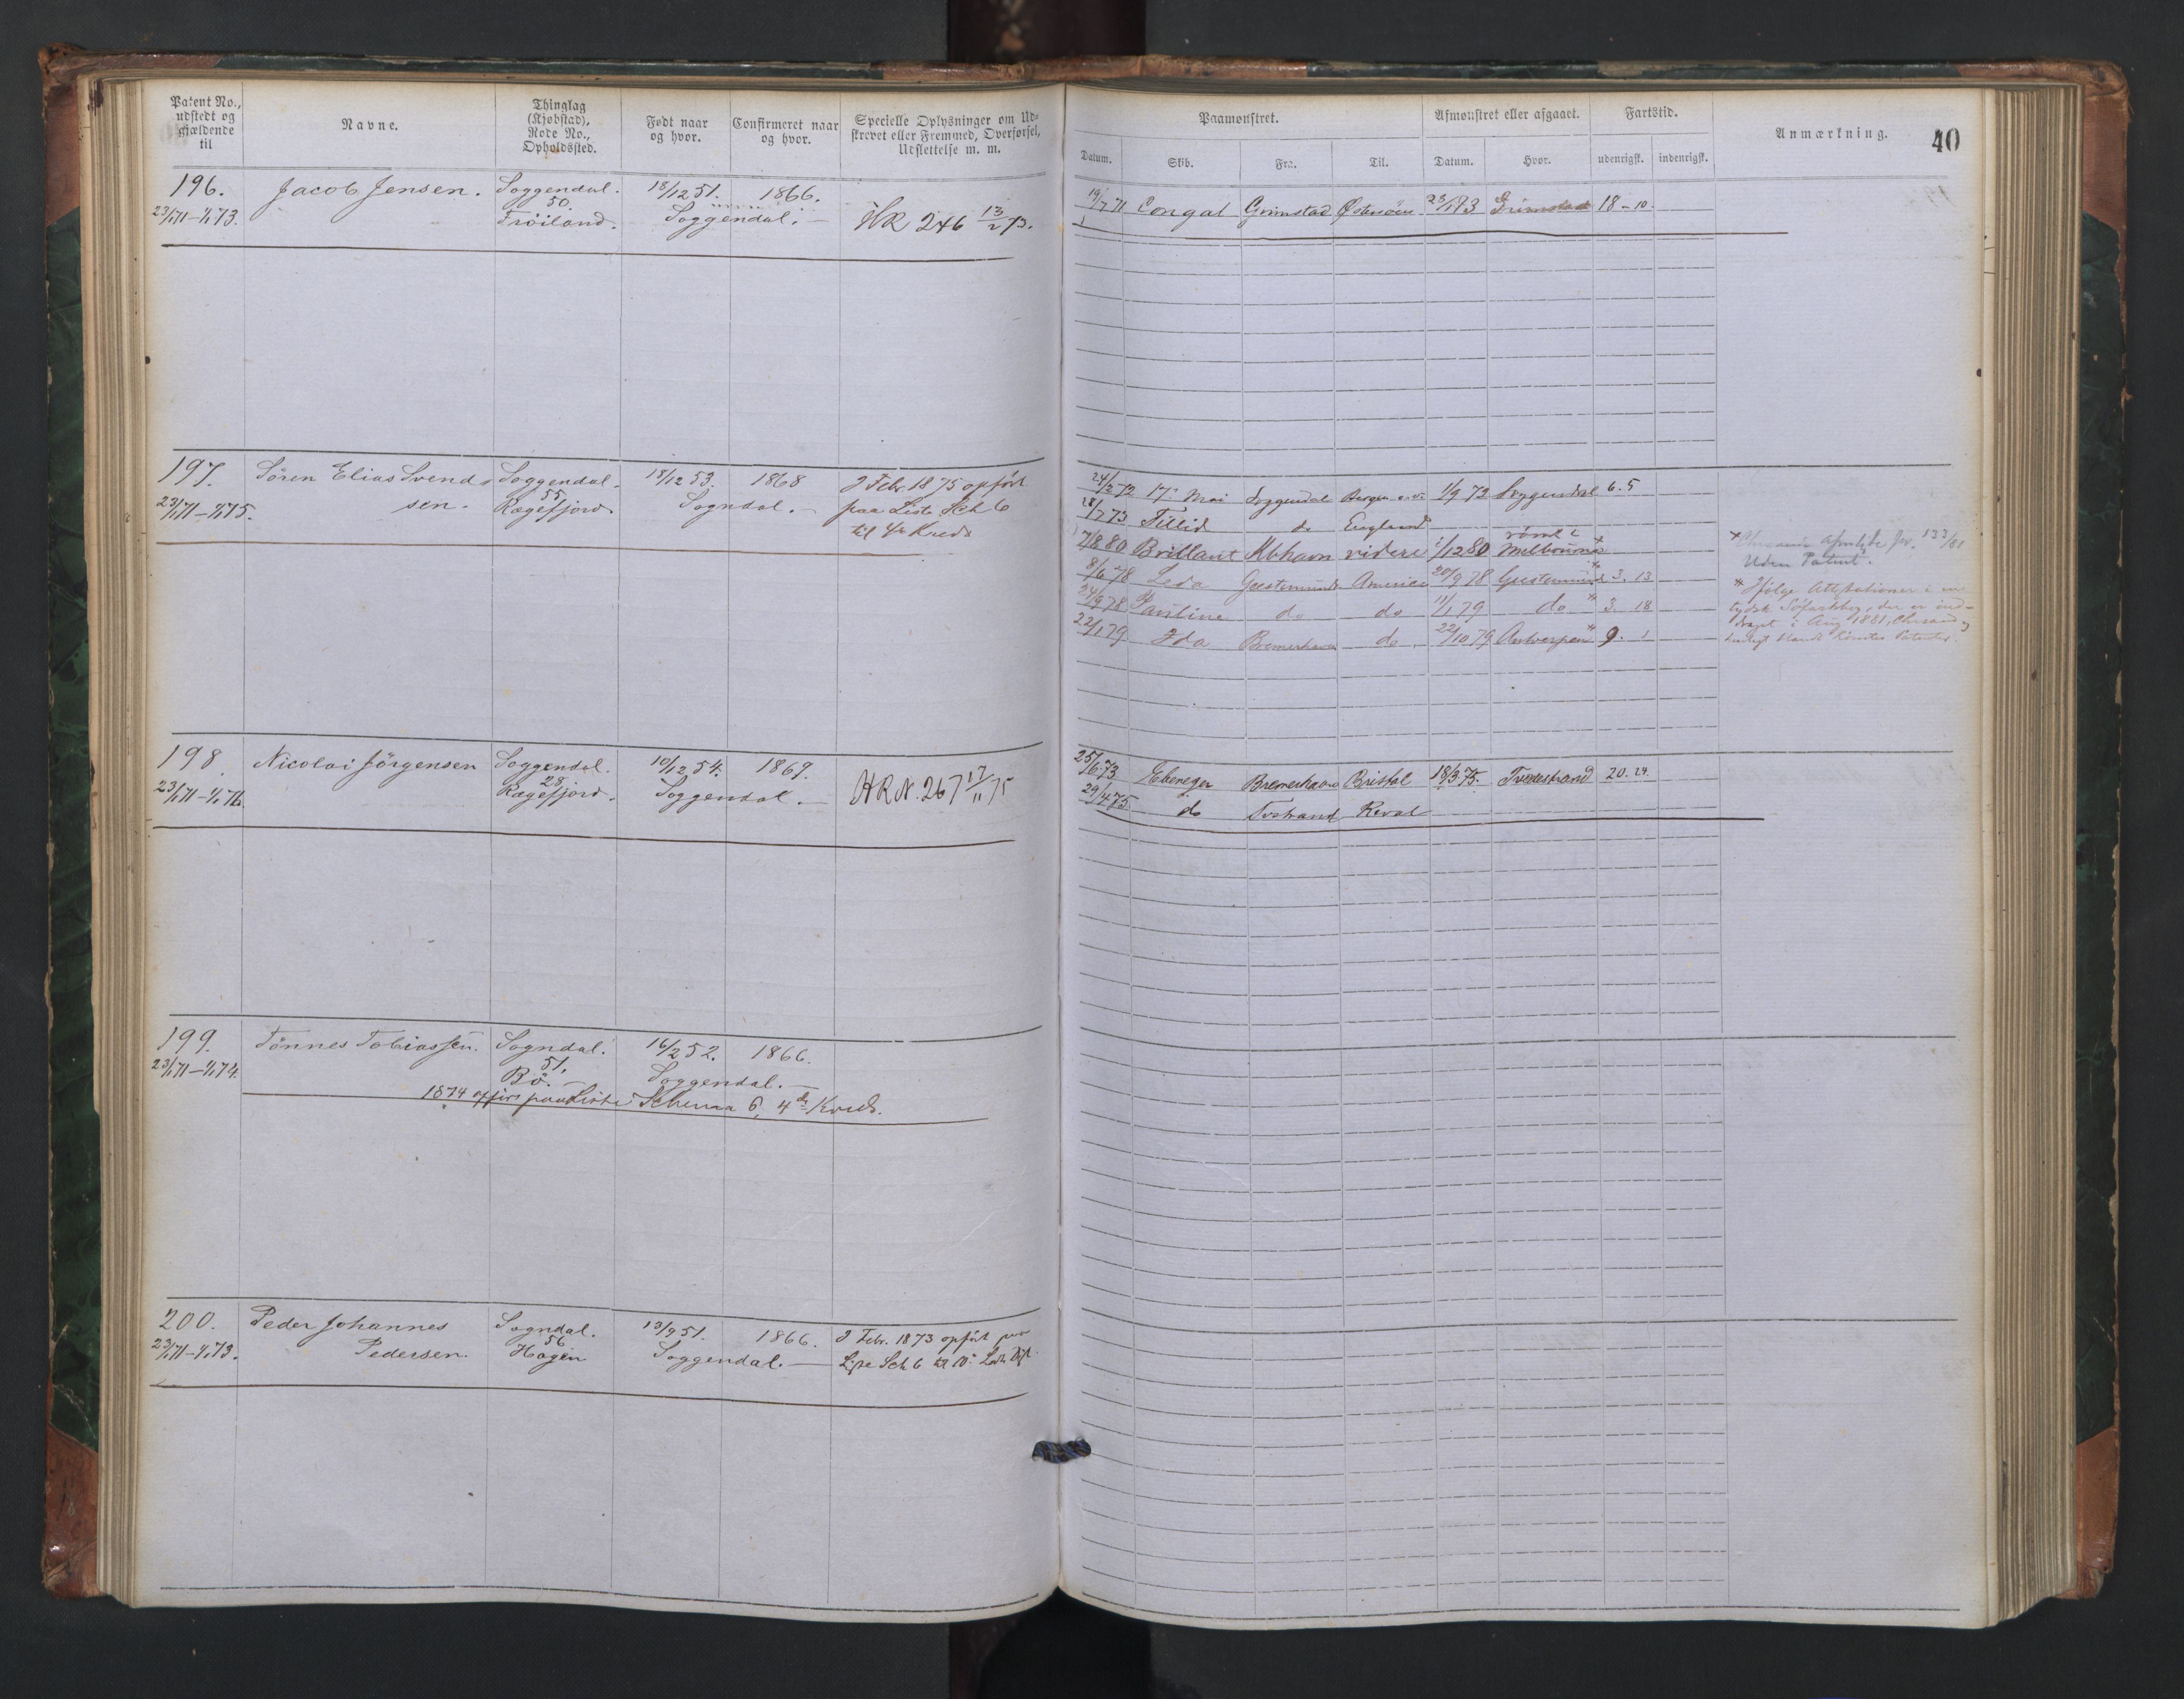 Patent No., udstedt og gjældende til
Navne.
Thinglag (Kjøbstad), Rode No., Opholdssted.
Født naar og hvor.
Confirmeret naar og hvor.
Specielle Oplysninger om Udskrevet eller Fremmed, Overførsel, Udslettelse m. m.
Paamønstret.
Afmønstret eller afgaaet.
Fartstid.
Anmærkning.
40
Datum.
Skib.
Fra.
Til.
Datum.
Hvor.
udenrigsk.
indenrigsk.
196. Jacob Jensen. Soggendal. 18/12 51. 1866.
50.
23/1 71 - 1/1 73. Fröiland. Soggendal. HR 246 13/2 73.
19/7 71 Congal Grimstad 23/1 93 Grimstad 18 - 10.
197. Sören Elias Svend- Soggendal. 18/12 53. 1868 J Febr 1875 opfört
55
23/1 71 - 1/1 75. sen. Rægefjord. Sogndal. paa Liste Sch 6
til 4de Kreds
24/2 72 17de Mai Soggendal Bergen 1/9 72 Soggendal 6. 5
28/7 73 Tillid do England
römt i
7/8 80 Brillant Kbhavn videre 1/12 80 Melbourne
8/6 78 Leda Geestemünde America 20/9 78 Geestemünde 3. 13
24/9 78 Pauline do do 11/1 79 do 3. 18
22/1 79 Ida Bremerhaven do 22/10 79 Antwerpen 9. 1
133/81
Uden Patent.
* Ifølge Attestationer i en
tydsk Söfartsbog, der er ind-
draget i Aug 1881,
198 Nicolai Jörgensen Soggendal. 10/12 54. 1869.
28.
23/1 71 - 1/1 76. Rægefjord. Soggendal. HR N. 267 17/11 75
25/6 73 Ebeneger Bremerhaven Bristol 18/3 75. Tvedestrand 20. 24.
29/4 75. do Tvstrand Reval
199. Tönnes Tobiassen. Sogndal. 16/2 52. 1866.
51.
23/1 71 - 1/1 74. Bö. Soggendal.
1874 opförs paa Liste Schema 6, 4de Kreds.
200. Peder Johannes Sogndal. 13/9 51. 1866. J Febr. 1873 opfört paa
56
23/1 71 - 1/1 73. Pedersen. Hogen Soggendal. Liste Sch 6 til